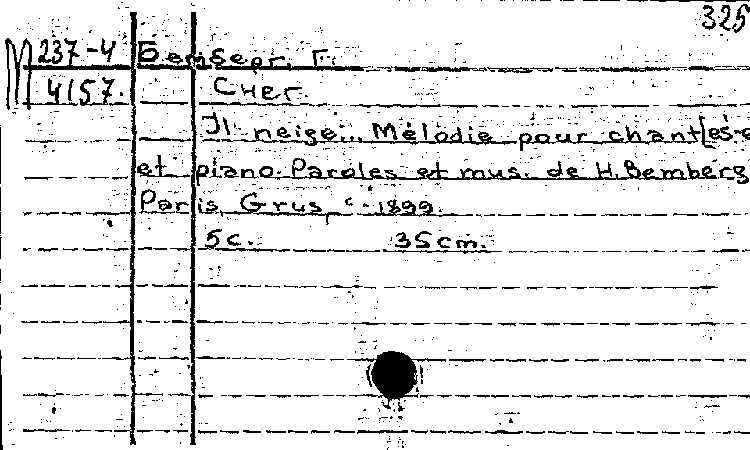 325
М 237-4 Бемберг. Г.
4157. Снег.
Il neige... Mélodie pour chant [es-e
et piano. Paroles et mus. de H. Bemberg
Paris, Grus, c. 1899.
5c. 35cm.